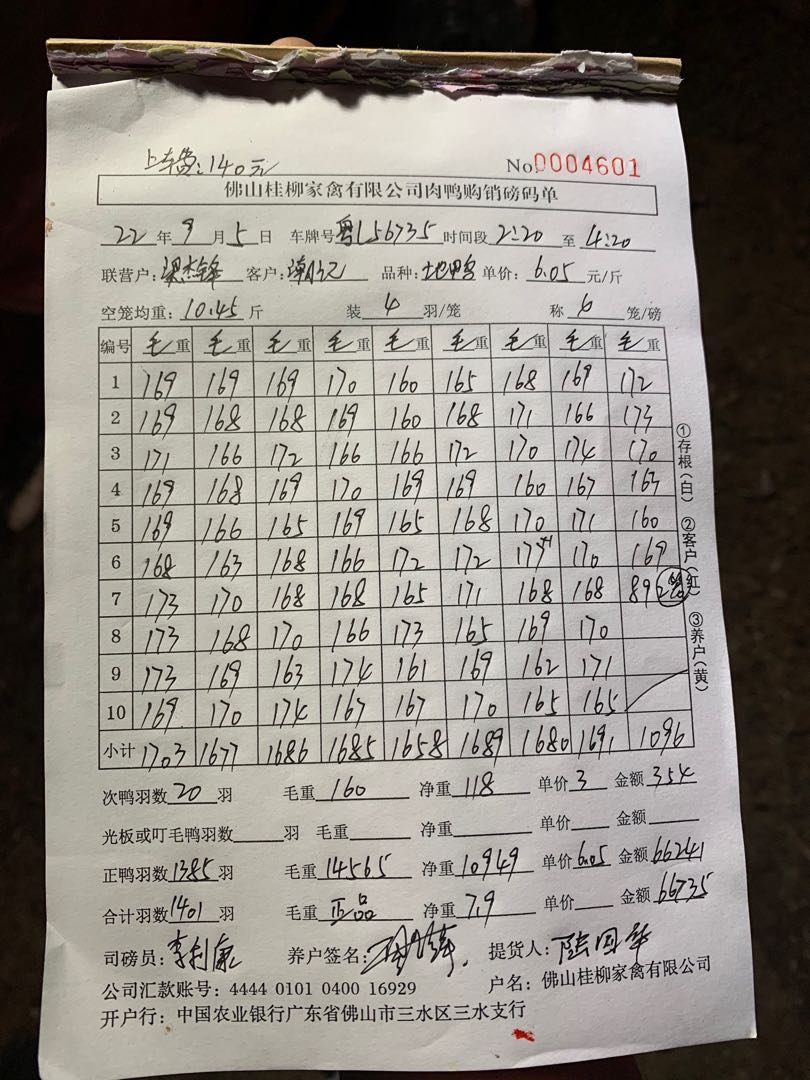 上车费:140元 No.0004601
佛山桂柳家禽有限公司肉鸭购销磅码单
22年9月5日 车牌号粤L56735 时间段2:20至4:20
联营户: 梁杰锋 客户: 品种: 单价: 6.05元/斤
空笼均重: 10.45斤 装4羽/笼 称6笼/磅
编号 毛重 毛重 毛重 毛重 毛重 毛重 毛重 毛重 毛重
1 169 169 169 170 160 165 168 169 172
2 169 168 168 169 160 168 171 166 173
3 171 166 172 166 166 172 170 174 170
4 169 168 169 170 169 169 160 167 163
5 169 166 165 169 165 168 170 171 160
6 168 163 168 166 172 172 170 169
7 173 170 168 168 165 171 168 168 89
8 173 168 170 166 173 165 169 170
9 173 169 163 174 161 169 162 171
10 169 170 174 167 167 170 165 165
小计 1703 1677 1686 1685 1658 1689 1680 1691 1096
次鸭羽数20羽 毛重160 净重118 单价3 金额354
光板或叮毛鸭羽数 羽 毛重 净重 单价 金额
正鸭羽数1385羽 毛重14565 净重10949 单价6.05 金额66241
合计羽数1401羽 毛重正品 净重7.9 单价 金额66735
司磅员: 李利康 养户签名: 提货人: 陆国华
公司汇款账号: 4444 0101 0400 16929 户名: 佛山桂柳家禽有限公司
开户行: 中国农业银行广东省佛山市三水区三水支行
①存根(白) ②客户(红) ③养户(黄)